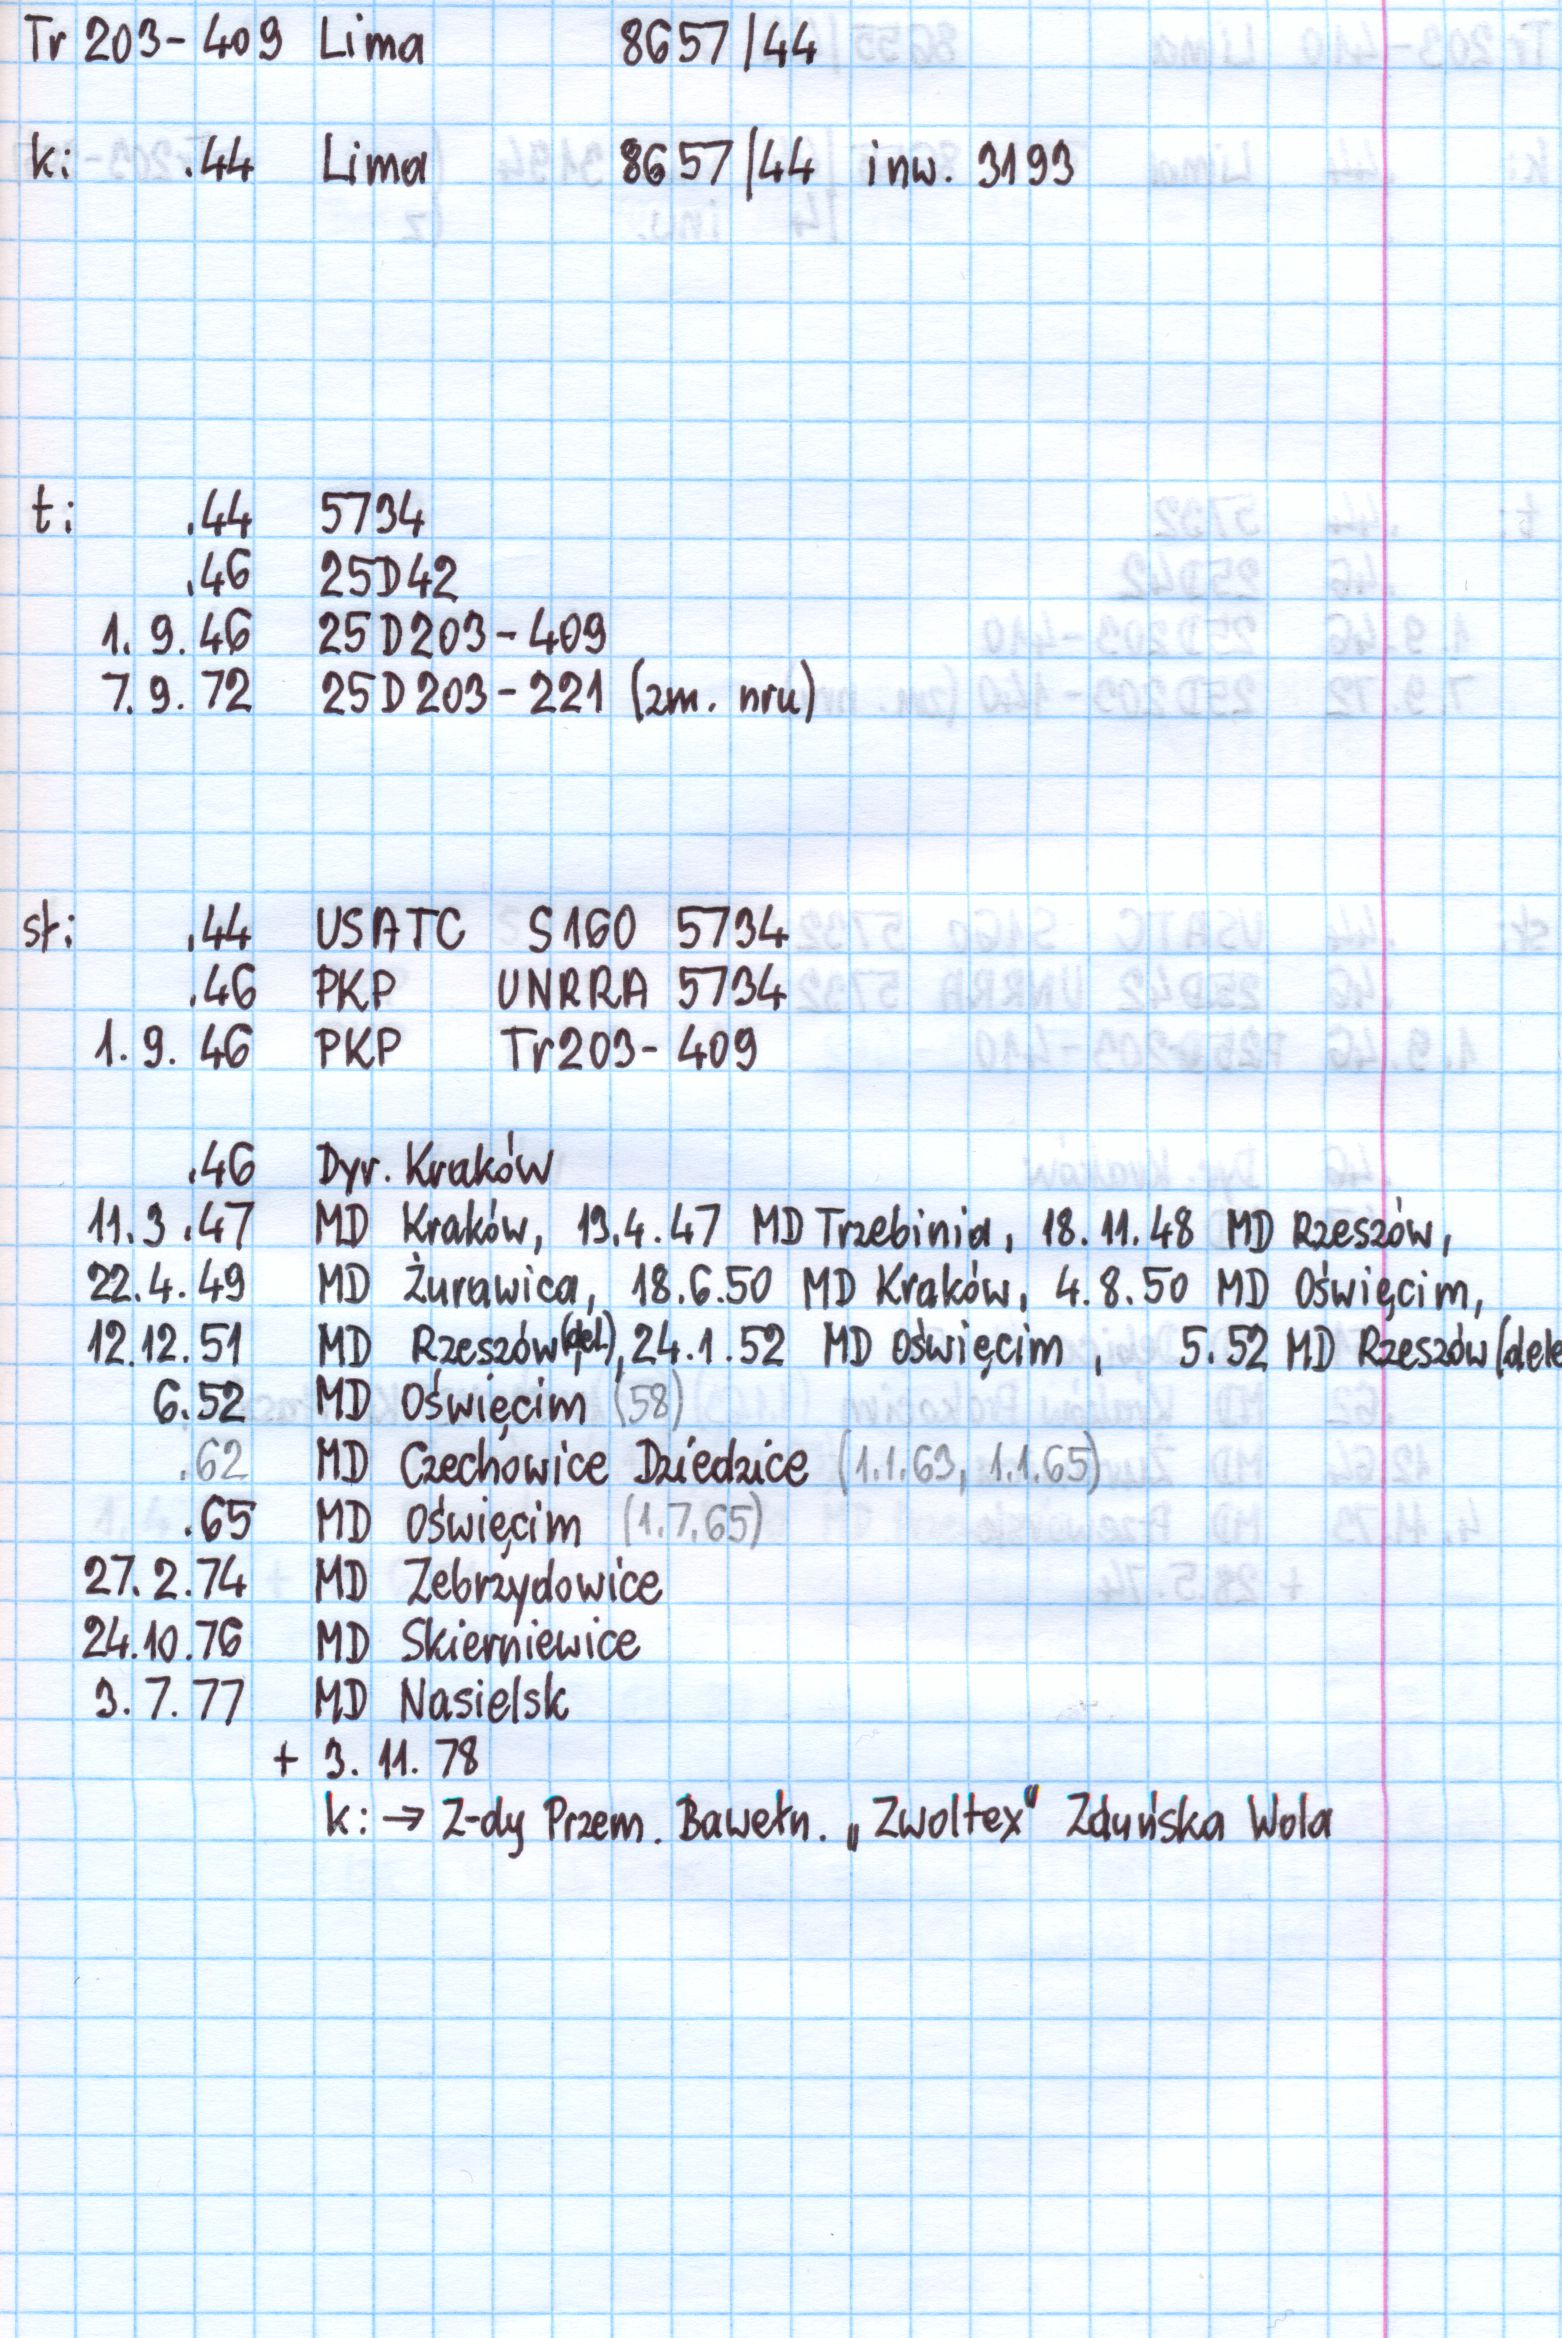 Tr 203-409 Lima 8657/44
k: .44 Lima 8657/44 inw. 3193
t: .44 5734
.46 25D42
1.9.46 25D203-409
7.9.72 25D203-221 (zm. nru)
st: .44 USATC S160 5734
.46 PKP UNRRA 5734
1.9.46 PKP Tr203-409
.46 Dyr. Kraków
11.3.47 MD Kraków, 19.4.47 MD Trzebinia, 18.11.48 MD Rzeszów,
22.4.49 MD Żurawica, 18.6.50 MD Kraków, 4.8.50 MD Oświęcim,
12.12.51 MD Rzeszów (del), 24.1.52 MD Oświęcim, 5.52 MD Rzeszów (dele
6.52 MD Oświęcim (58)
.62 MD Czechowice Dziedzice (1.1.63, 1.1.65)
.65 MD Oświęcim (1.7.65)
27.2.74 MD Zebrzydowice
24.10.76 MD Skierniewice
3.7.77 MD Nasielsk
+ 3.11.78
k: → Z-dy Przem. Bawełn. „Zwoltex" Zduńska Wola